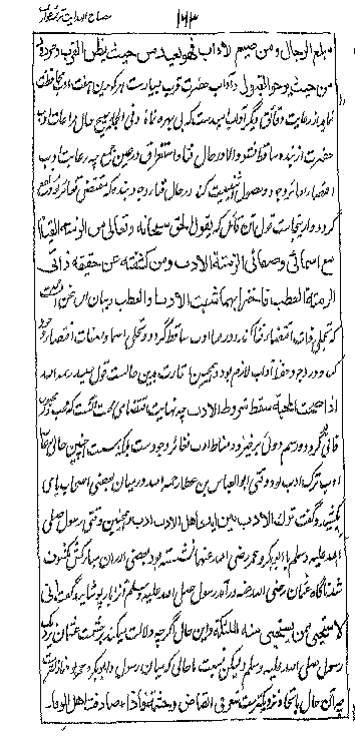 ۱۶۳
مبلغ الرجال ومن ضیع الاداب فهو بعید من حیث یظن القرب و مردود
من حیث یرجو القبول و آداب حضرت قرب بسیارست هر کو درین هفت ادب محافظت
نماید از رعایت دقائق دیگر آداب امیدست که بی بهره نماند و فی الجمله هیچ حال مراعات ادب
حضرت از بنده ساقط نشود الا در حال فنا و استغراق در عین جمع چه رعایت ادب
اقتضای وجود کند در حال فنا وجود بنده که مقتضی تغایر بود
گردد و ازینجاست قول آن قائل که یقول الحق سبحانه و تعالی من الزمته القیام
مع اسمائی و صفاتی الزمته الادب ومن کشفته عن حقیقة ذاتی
الزمته العطب فاختر ایهما شئت الادب او العطب
که تجلی ذات اقتضای فنا کند و در و ادب ساقط گردد و تجلی اسما و صفات اقتضای
کند و در وجود حفظ آداب لازم بود و همچنین اشارت بدین حالست قول جنید رحمه الله
اذا صحت المحبة سقط شروط الادب چه نهایت اقتضای محبت آنست که محب
فانی گردد و رسم دوئی برخیزد و مناط ادب تغایر وجودست
ادب ترک ادب بود وقتی ابو العباس بن عطا رحمه الله در میان بعضی اصحاب پای
بکشید و گفت ترک الادب بین اهل الادب ادب و همچنین وقتی رسول صلی
الله علیه و سلم با ابوبکر و عمر رضی الله عنهما نشسته بود بعضی از ران مبارکش مکشوف
شد ناگاه عثمان رضی الله عنه در آمد رسول صلی الله علیه و سلم آنرا بپوشانید و گفت
لا استحیی ممن یستحیی منه الملئکة و این حال اگرچه دلالت میکند بر حشمت عثمان نزدیک
رسول صلی الله علیه و سلم ولیکن نسبت با حالی که میان رسول و ابوبکر و عمر بود
چه آن حال باتحاد نزدیکترست